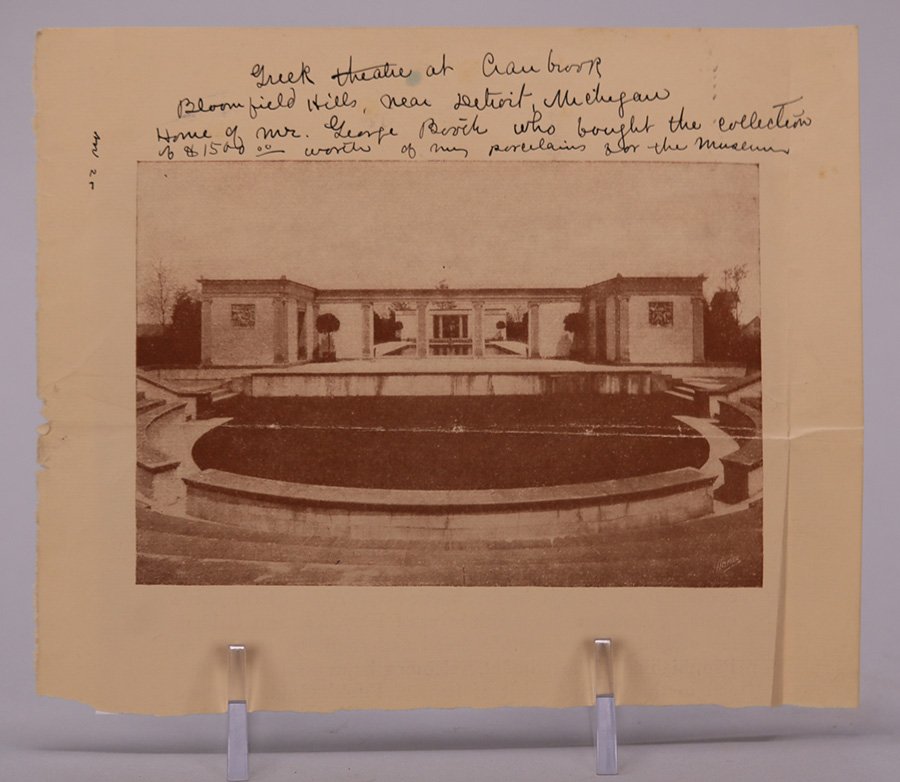 Greek theatre at Cranbrook
Bloomfield Hills, near Detroit, Michigan
Home of Mr. George Booth who bought the collection
of $1500 00 worth of my porcelains for the Museum